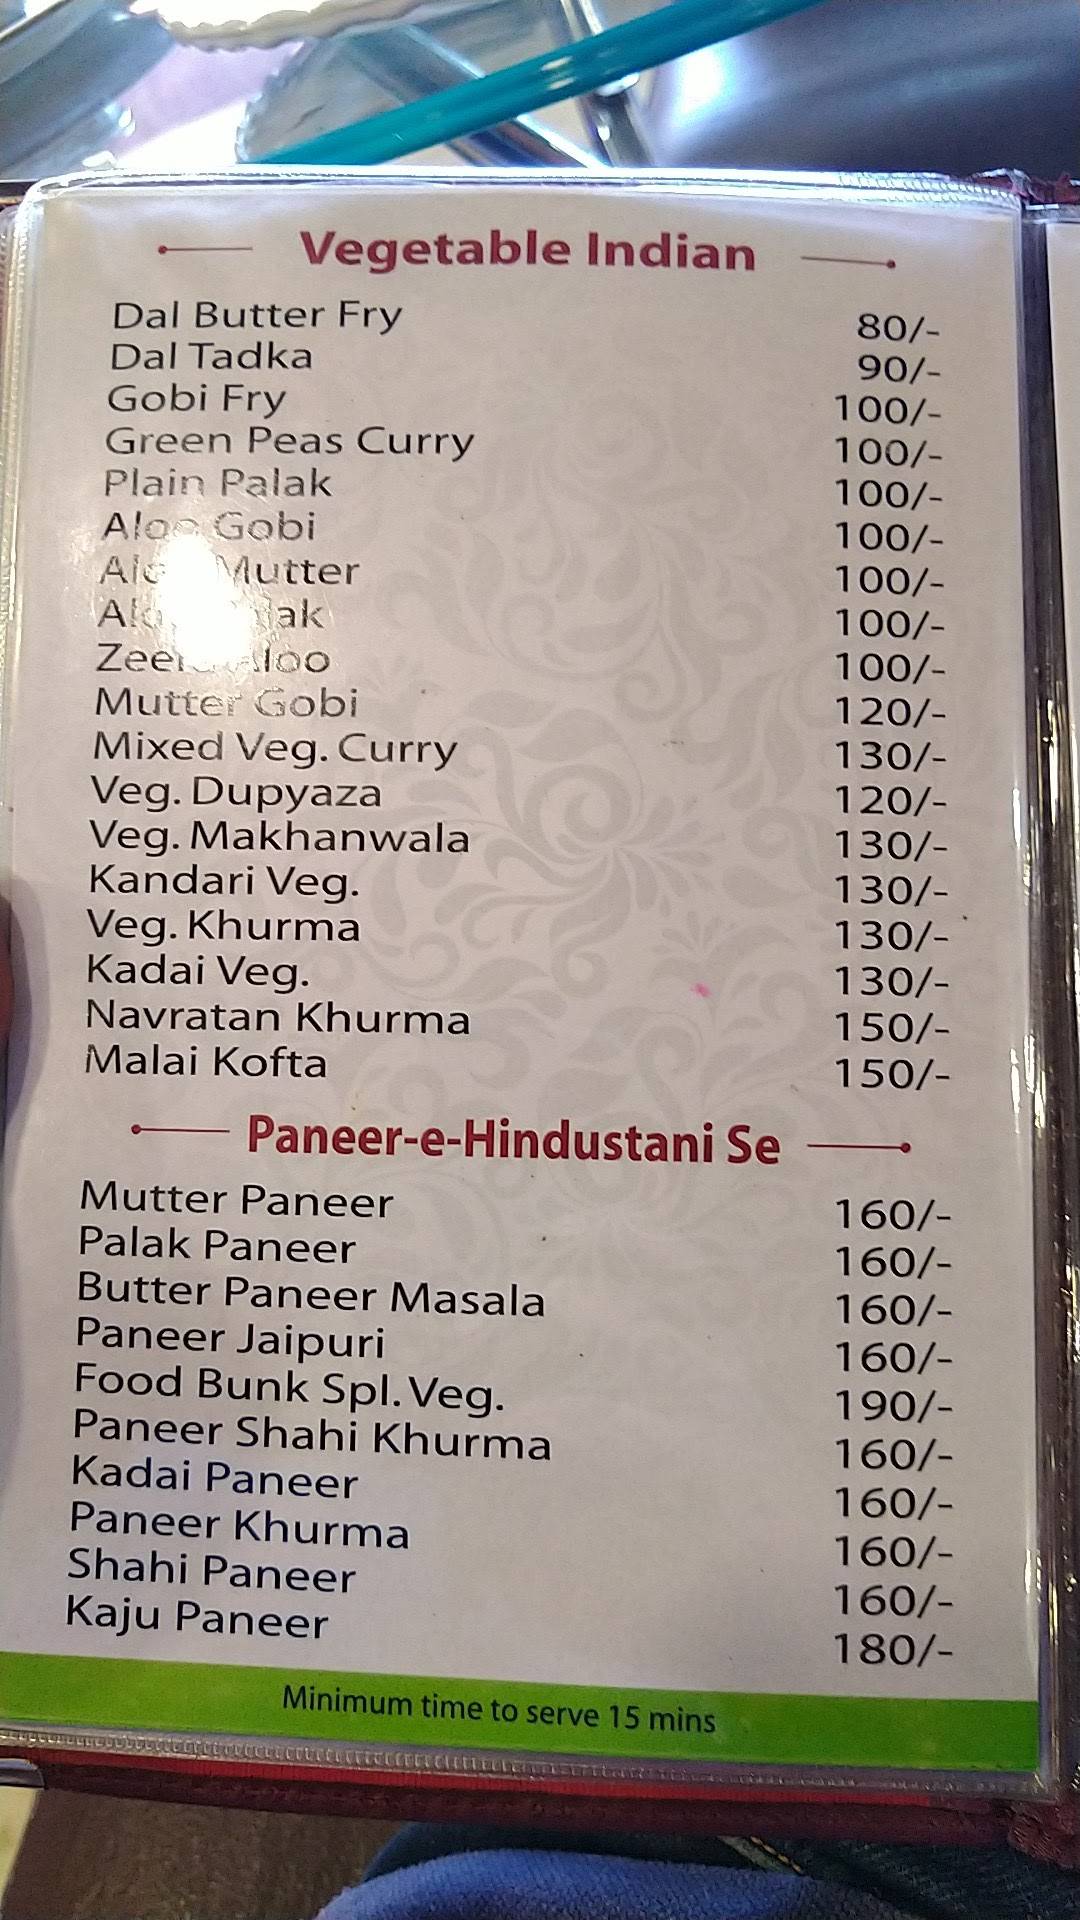 Vegetable Indian
Dal Butter Fry 80/-
Dal Tadka 90/-
Gobi Fry 100/-
Green Peas Curry 100/-
Plain Palak 100/-
Aloo Gobi 100/-
Mutter 100/-
100/-
100/-
Mutter Gobi 120/-
Mixed Veg. Curry 130/-
Veg. Dupyaza 120/-
Veg. Makhanwala 130/-
Kandari Veg. 130/-
Veg. Khurma 130/-
Kadai Veg. 130/-
Navratan Khurma 150/-
Malai Kofta 150/-
Paneer-e-Hindustani Se
Mutter Paneer 160/-
Palak Paneer 160/-
Butter Paneer Masala 160/-
Paneer Jaipuri 160/-
Food Bunk Spl. Veg. 190/-
Paneer Shahi Khurma 160/-
Kadai Paneer 160/-
Paneer Khurma 160/-
Shahi Paneer 160/-
Kaju Paneer 180/-
Minimum time to serve 15 mins